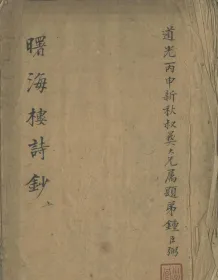 道光丙申新秋叔英大兄屬題弟鍾
曙海樓詩鈔
上